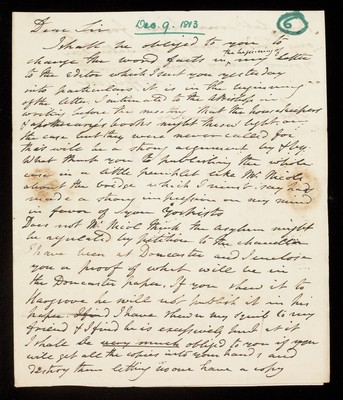 Dec. 9. 1813
6
Dear Sir
I shall be obliged to you to
change the word facts in the beginning of my letter
to the editor which I sent you yesterday
into particulars. It is in the beginning
of the letter. I intimated to the
working before the meeting that the housekeepers
& apothecary's books might throw light on
the case but they were never called for
this will be a strong argument by & by
What think you to publishing the whole
case in a little pamphlet like Mr Nicols
about the bridge which I must say had
made a strong impression on my mind
in favor of your Yorkists
Does not Mr Nicol think the asylum might
be regulated by petition to the chancellor
I have been at Doncaster and I enclose
you a proof of what will be in
the Doncaster paper. If you shew it to
Hargrove he will not publish it in his
paper. I find I have shewn my squib to my
friend & I find he is excessively hurt at it
I shall be very much obliged to you if you
will get all the copies into your hands and
destroy them letting us one have a copy